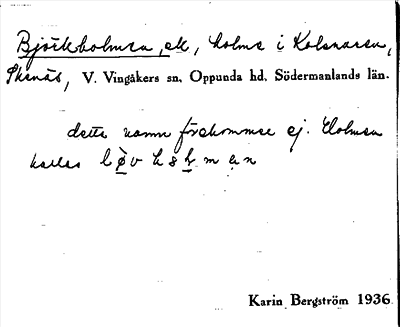 Björkholmen, ek, holme i Kolsnaren,
Skenäs, V. Vingåkers sn, Oppunda hd, Södermanlands län.
detta namn förekommer ej. Holmen
kallas løvhǝmen
Karin Bergström 1936